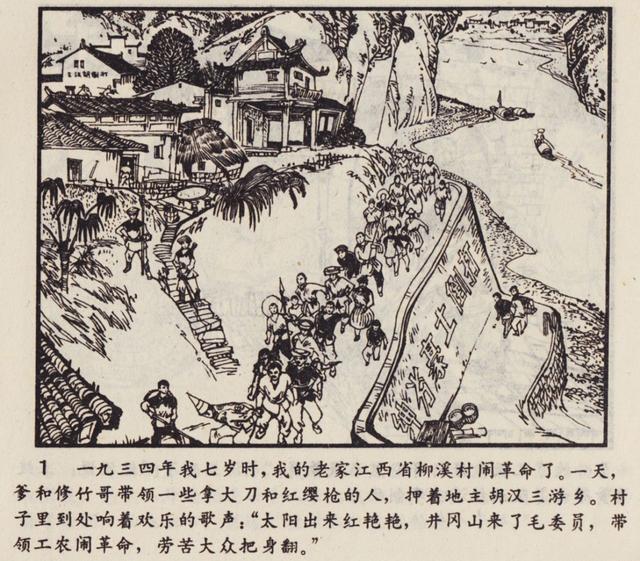 打倒胡汉三
打倒土豪劣绅
1 一九三四年我七岁时，我的老家江西省柳溪村闹革命了。一天，
爹和修竹哥带领一些拿大刀和红缨枪的人，押着地主胡汉三游乡。村
子里到处响着欢乐的歌声：“太阳出来红艳艳，井冈山来了毛委员，带
领工农闹革命，劳苦大众把身翻。”